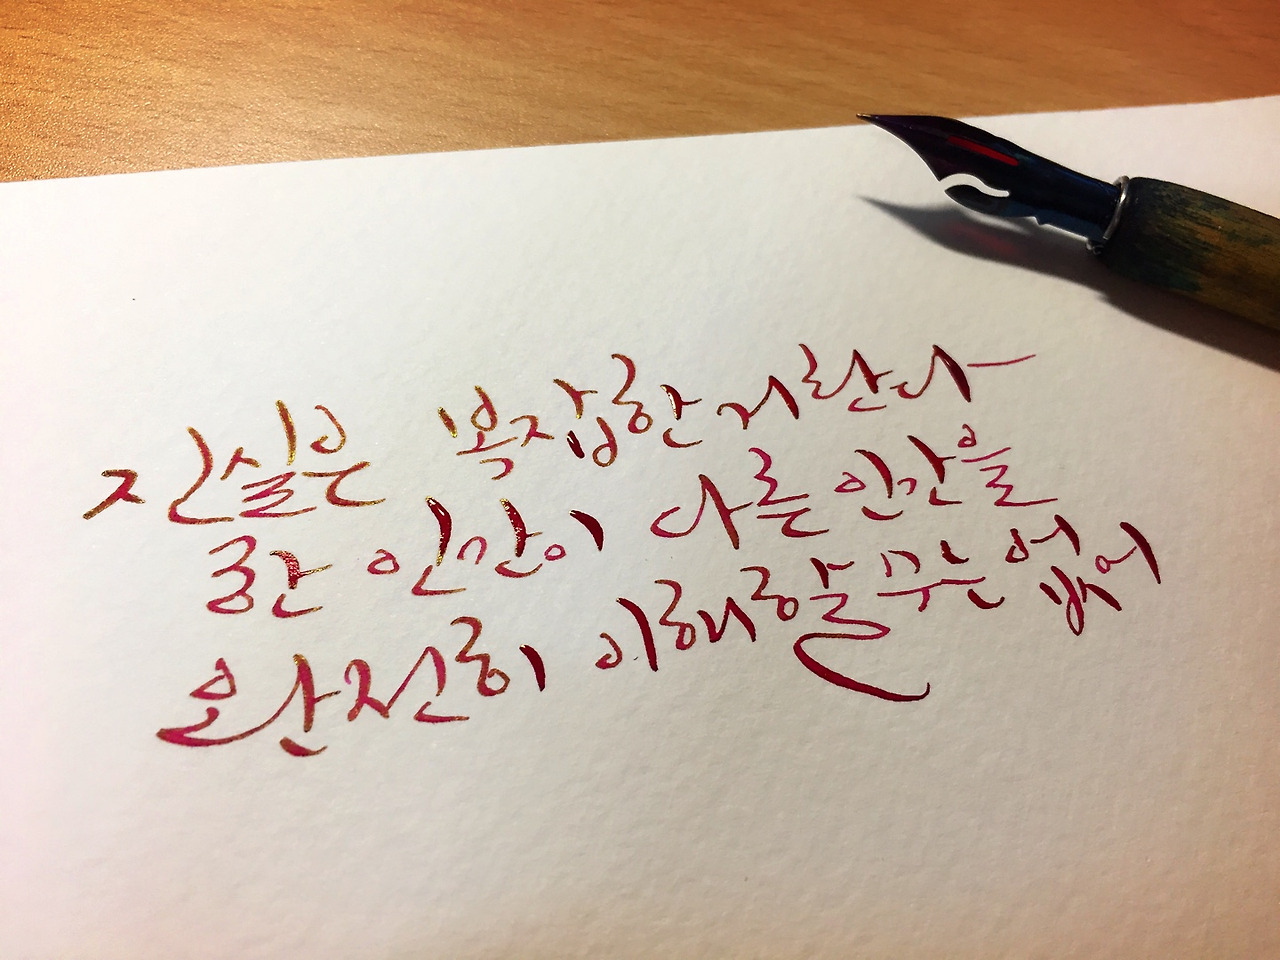 진실은 복잡한 거란다
한 인간이 다른 인간을
완전히 이해할 수는 없어